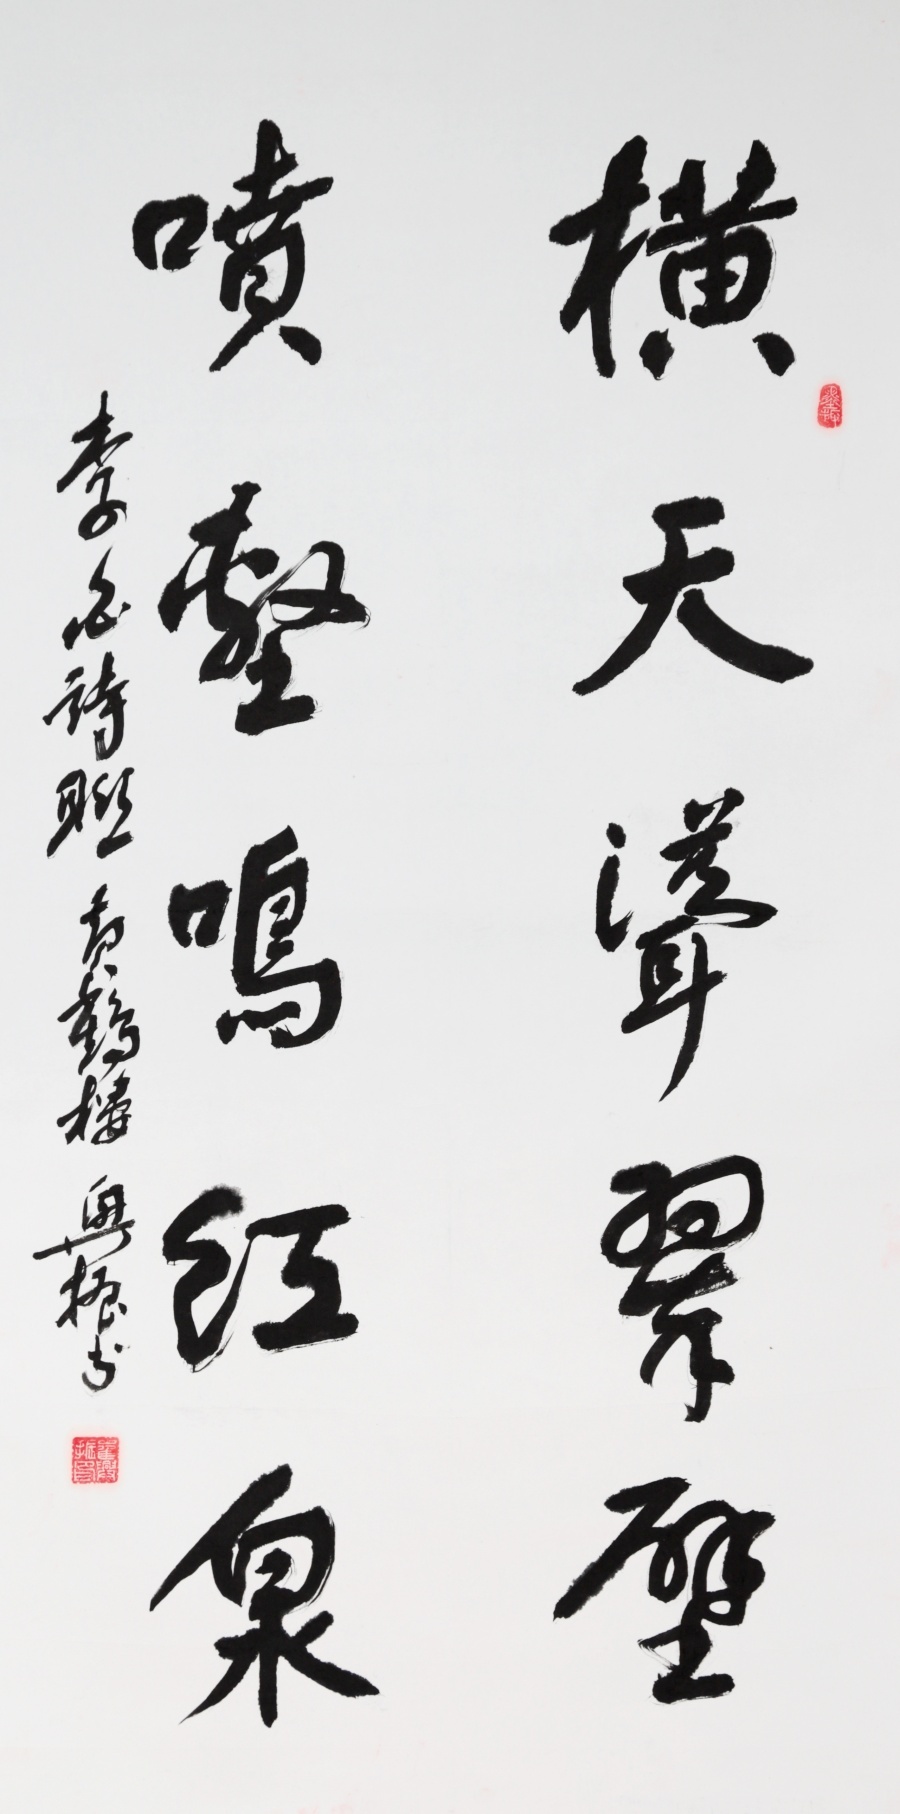 橫天聳翠壁
噴壑鳴紅泉
李白詩聯 黃鶴樓 興振書